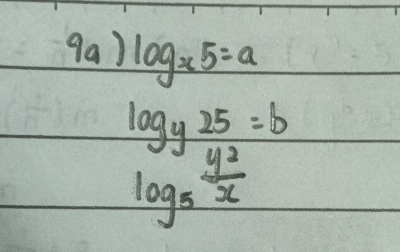 9a) logₓ5=a
log_y 25 = b
log₅ y²/x